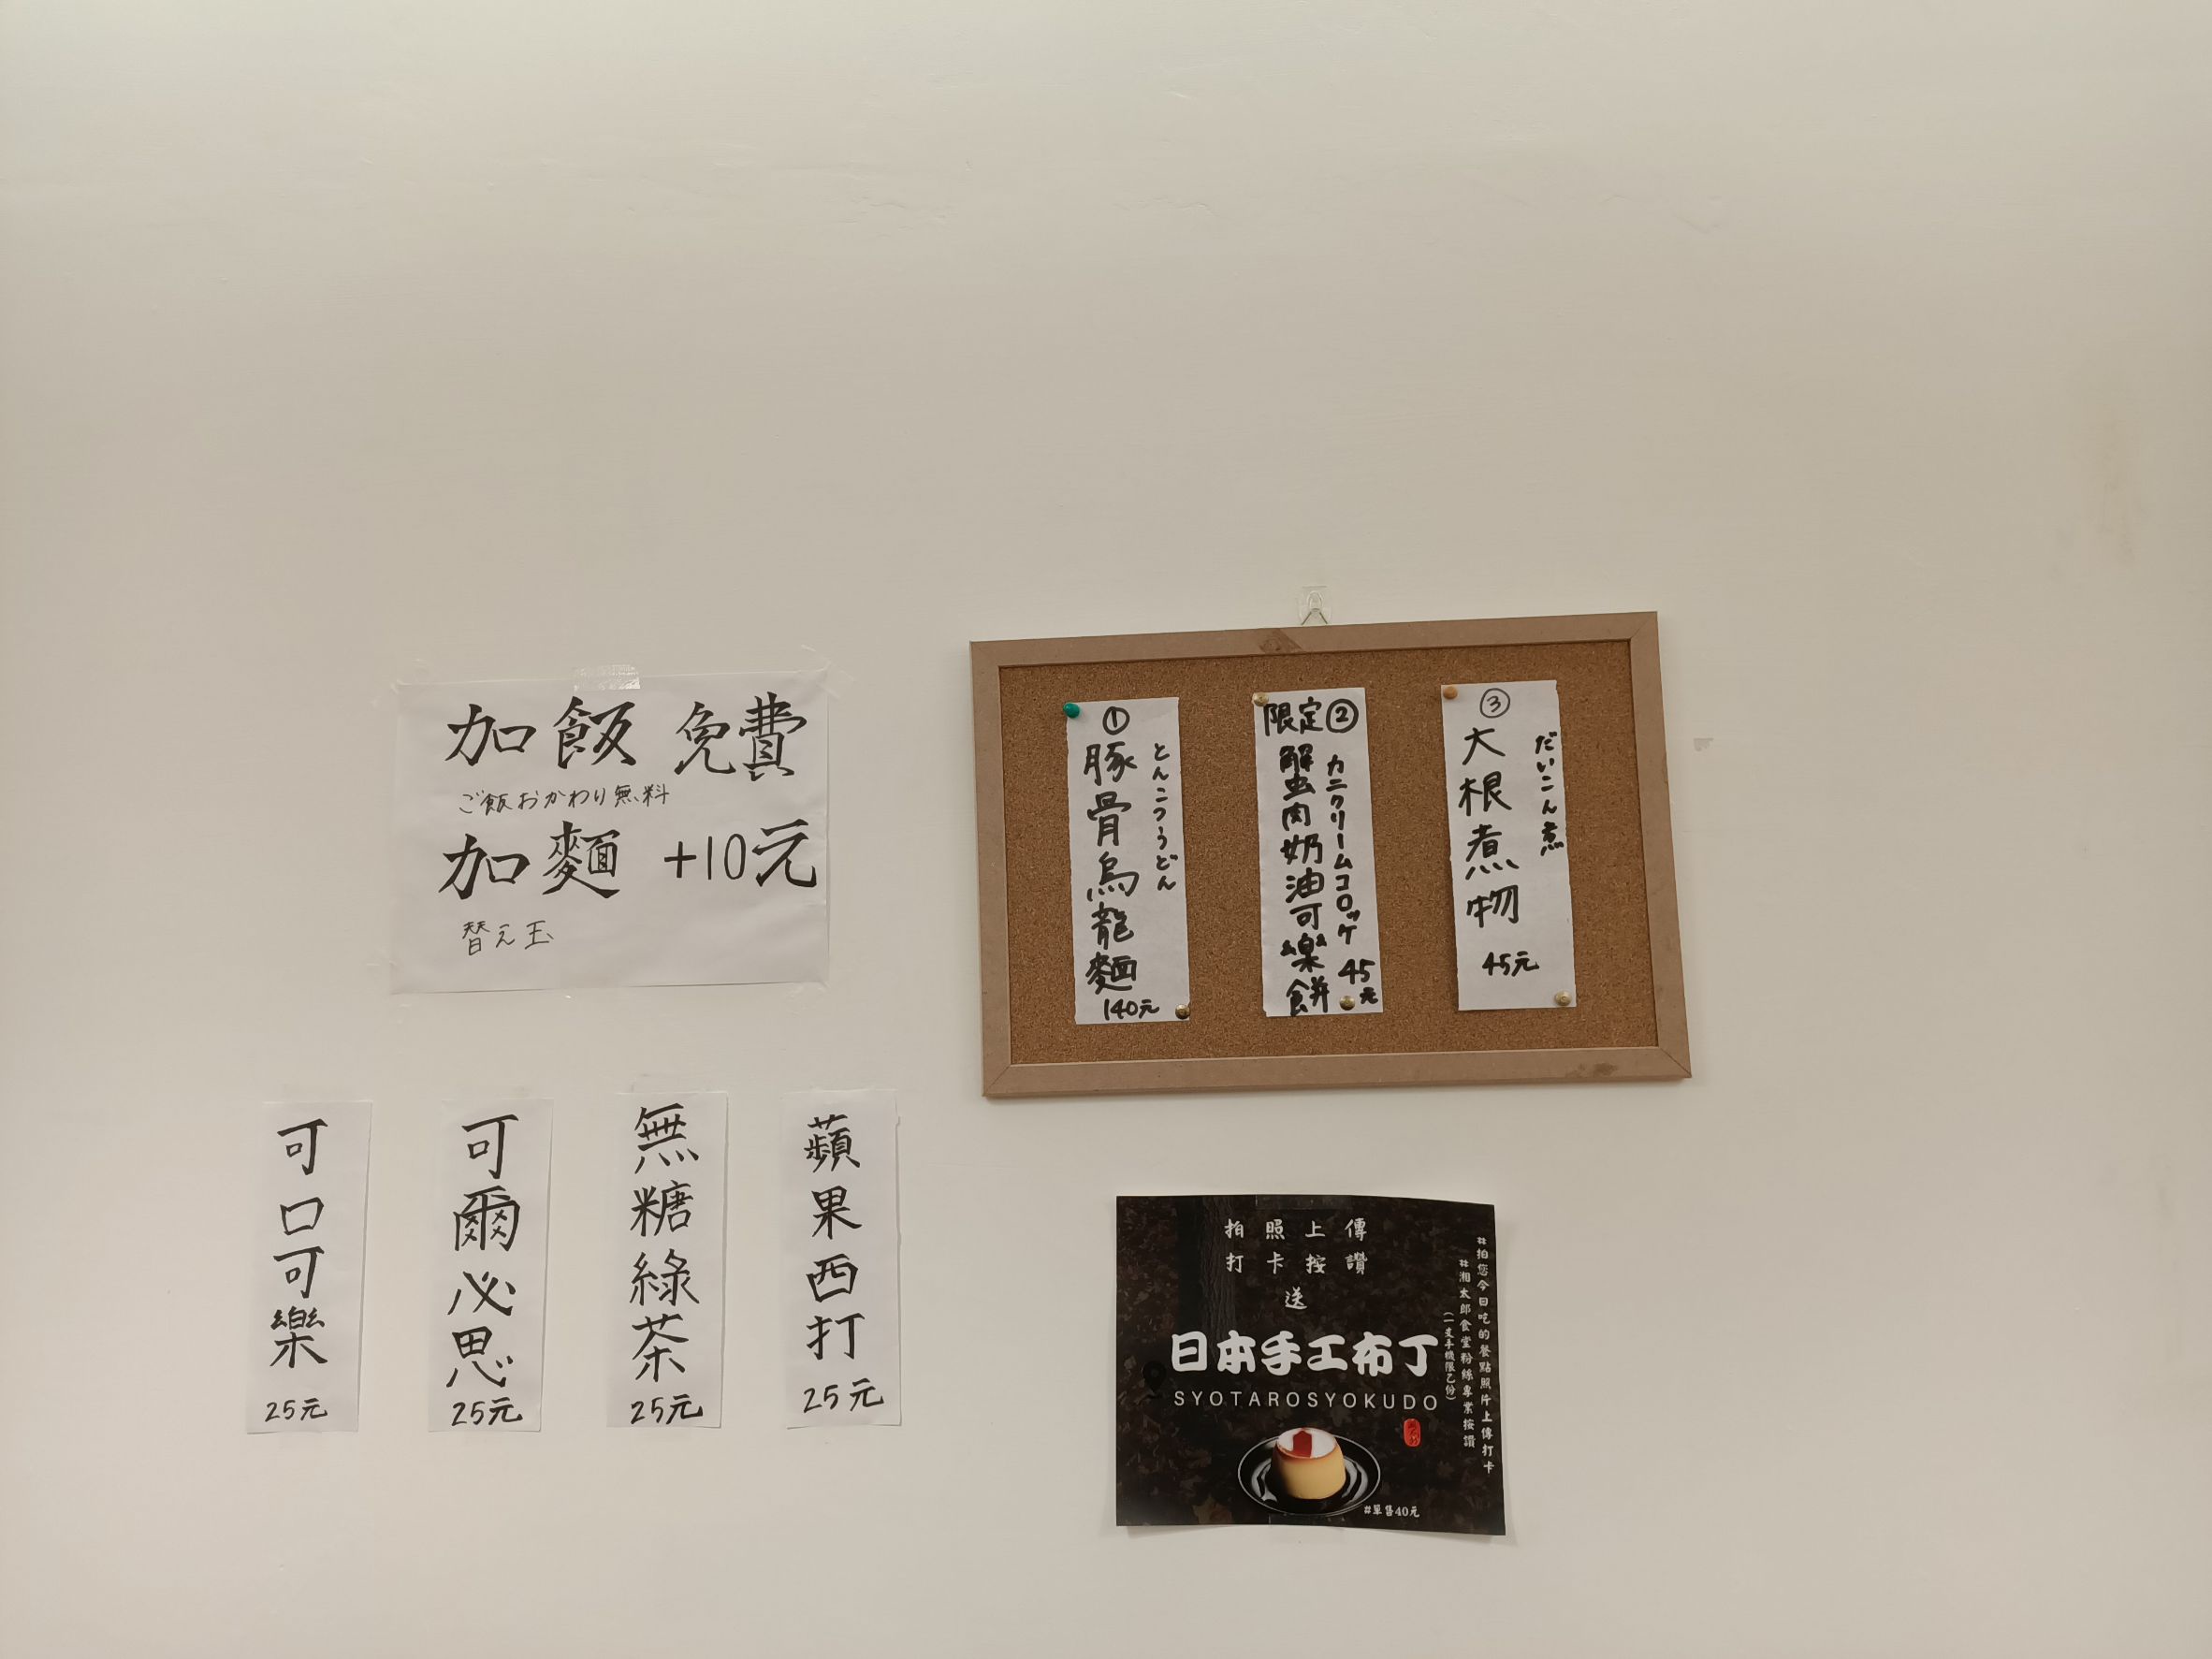 加飯 免費
ご飯おかわり無料
加麵 +10元
替え玉
①
豚骨烏龍麵
とんこつうどん
140元
限定②
蟹肉奶油可樂餅
カニクリームコロッケ
45元
③
大根煮物
だいこん煮
45元
可口可樂
25元
可爾必思
25元
無糖綠茶
25元
蘋果西打
25元
拍照上傳
打卡按讚
送
日本手工布丁
SYOTAROSYOKUDO
#拍您今日吃的餐點照片上傳打卡
#湘太郎食堂粉絲專業按讚
(一支手機限乙份)
#單售40元